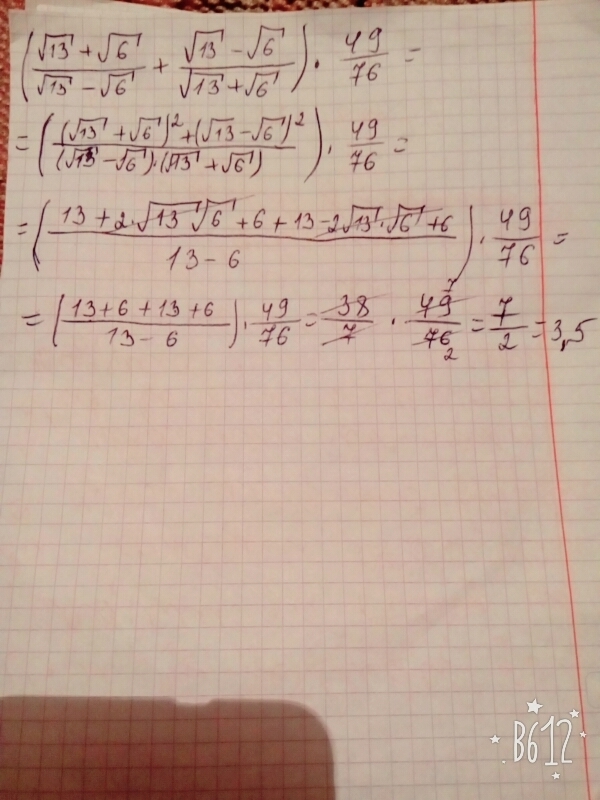 (√13 + √6 / √13 − √6 + √13 − √6 / √13 + √6) · 49/76 =
= ((√13 + √6)² + (√13 − √6)² / (√13 − √6)·(√13 + √6)) · 49/76 =
= (13 + 2·√13 √6 + 6 + 13 − 2√13·√6 + 6 / 13 − 6) · 49/76 =
= (13 + 6 + 13 + 6 / 13 − 6) · 49/76 = 38/7 · 49 7/76 2 = 7/2 = 3,5
B612